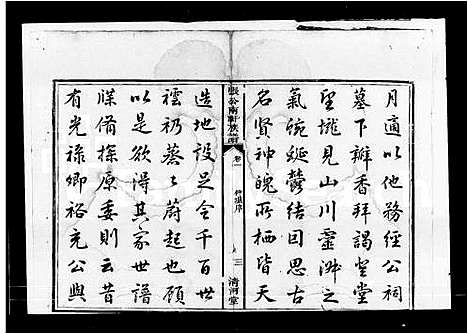 月適以他務經公祠
墓下瓣香拜謁登堂
望壠見山川靈淑之
氣蜿蜒鬱結因思古
名賢神魄所栖皆天
張公南軒族譜
卷一
三
清河堂
造地設足令千百世
雲礽蔡蔚起也願
以是欲得其家世譜
牒備探原委則云昔
有光祿卿裕充公與